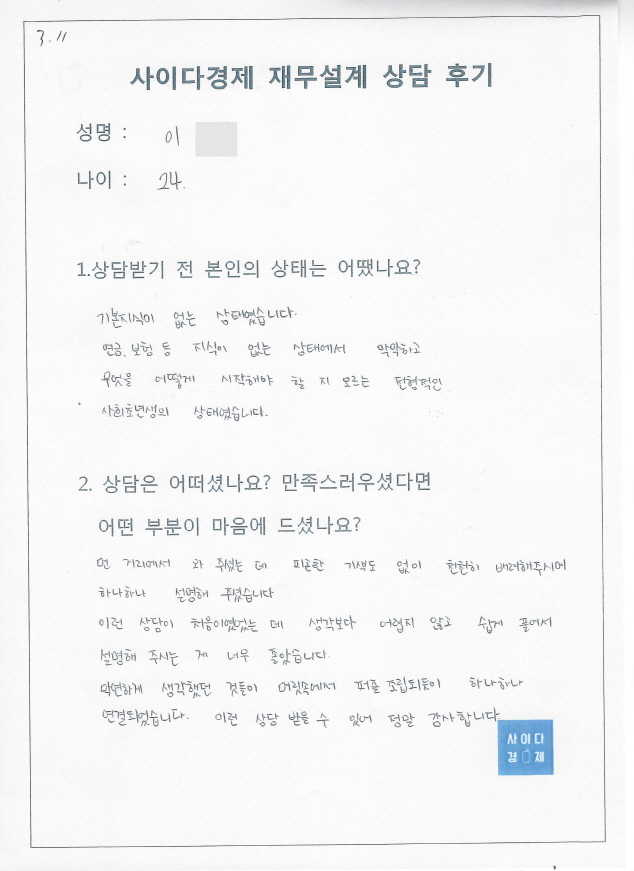 3. 11
사이다경제 재무설계 상담 후기
성명 : 이
나이 : 24.
1.상담받기 전 본인의 상태는 어땠나요?
기본지식이 없는 상태였습니다.
연금, 보험 등 지식이 없는 상태에서 막막하고
무엇을 어떻게 시작해야 할 지 모르는 전형적인
사회초년생의 상태였습니다.
2. 상담은 어떠셨나요? 만족스러우셨다면
어떤 부분이 마음에 드셨나요?
먼 거리에서 와 주셨는 데 피곤한 기색도 없이 천천히 배려해주시며
하나하나 설명해 주셨습니다
이런 상담이 처음이였었는 데 생각보다 어렵지 않고 쉽게 풀어서
설명해 주시는 게 너무 좋았습니다.
막연하게 생각했던 것들이 머릿속에서 퍼즐 조립되듯이 하나하나
연결되었습니다. 이런 상담 받을 수 있어 정말 감사합니다.
사이다
경제